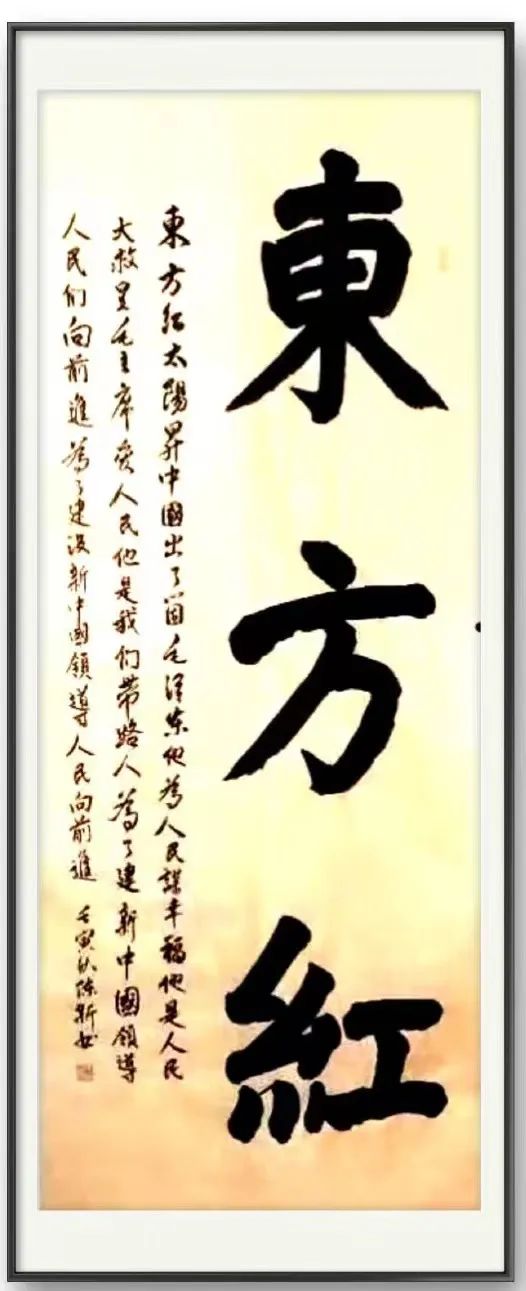 東方紅
東方紅太陽昇中國出了個毛澤东他為人民謀幸福他是人民
大救星毛主席爱人民他是我们带路人為了建新中國領導
人民们向前進為了建設新中國領導人民向前進
壬寅秋陈新